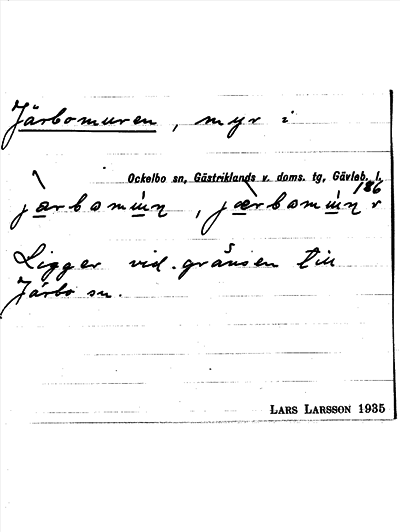 Järbomuren, myr i
Ockelbo sn, Gästriklands v. doms. tg, Gävleb. l.
186
jærbomu̇n, jærbomu̇n r
Ligger vid gränsen till
Järbo sn.
LARS LARSSON 1935